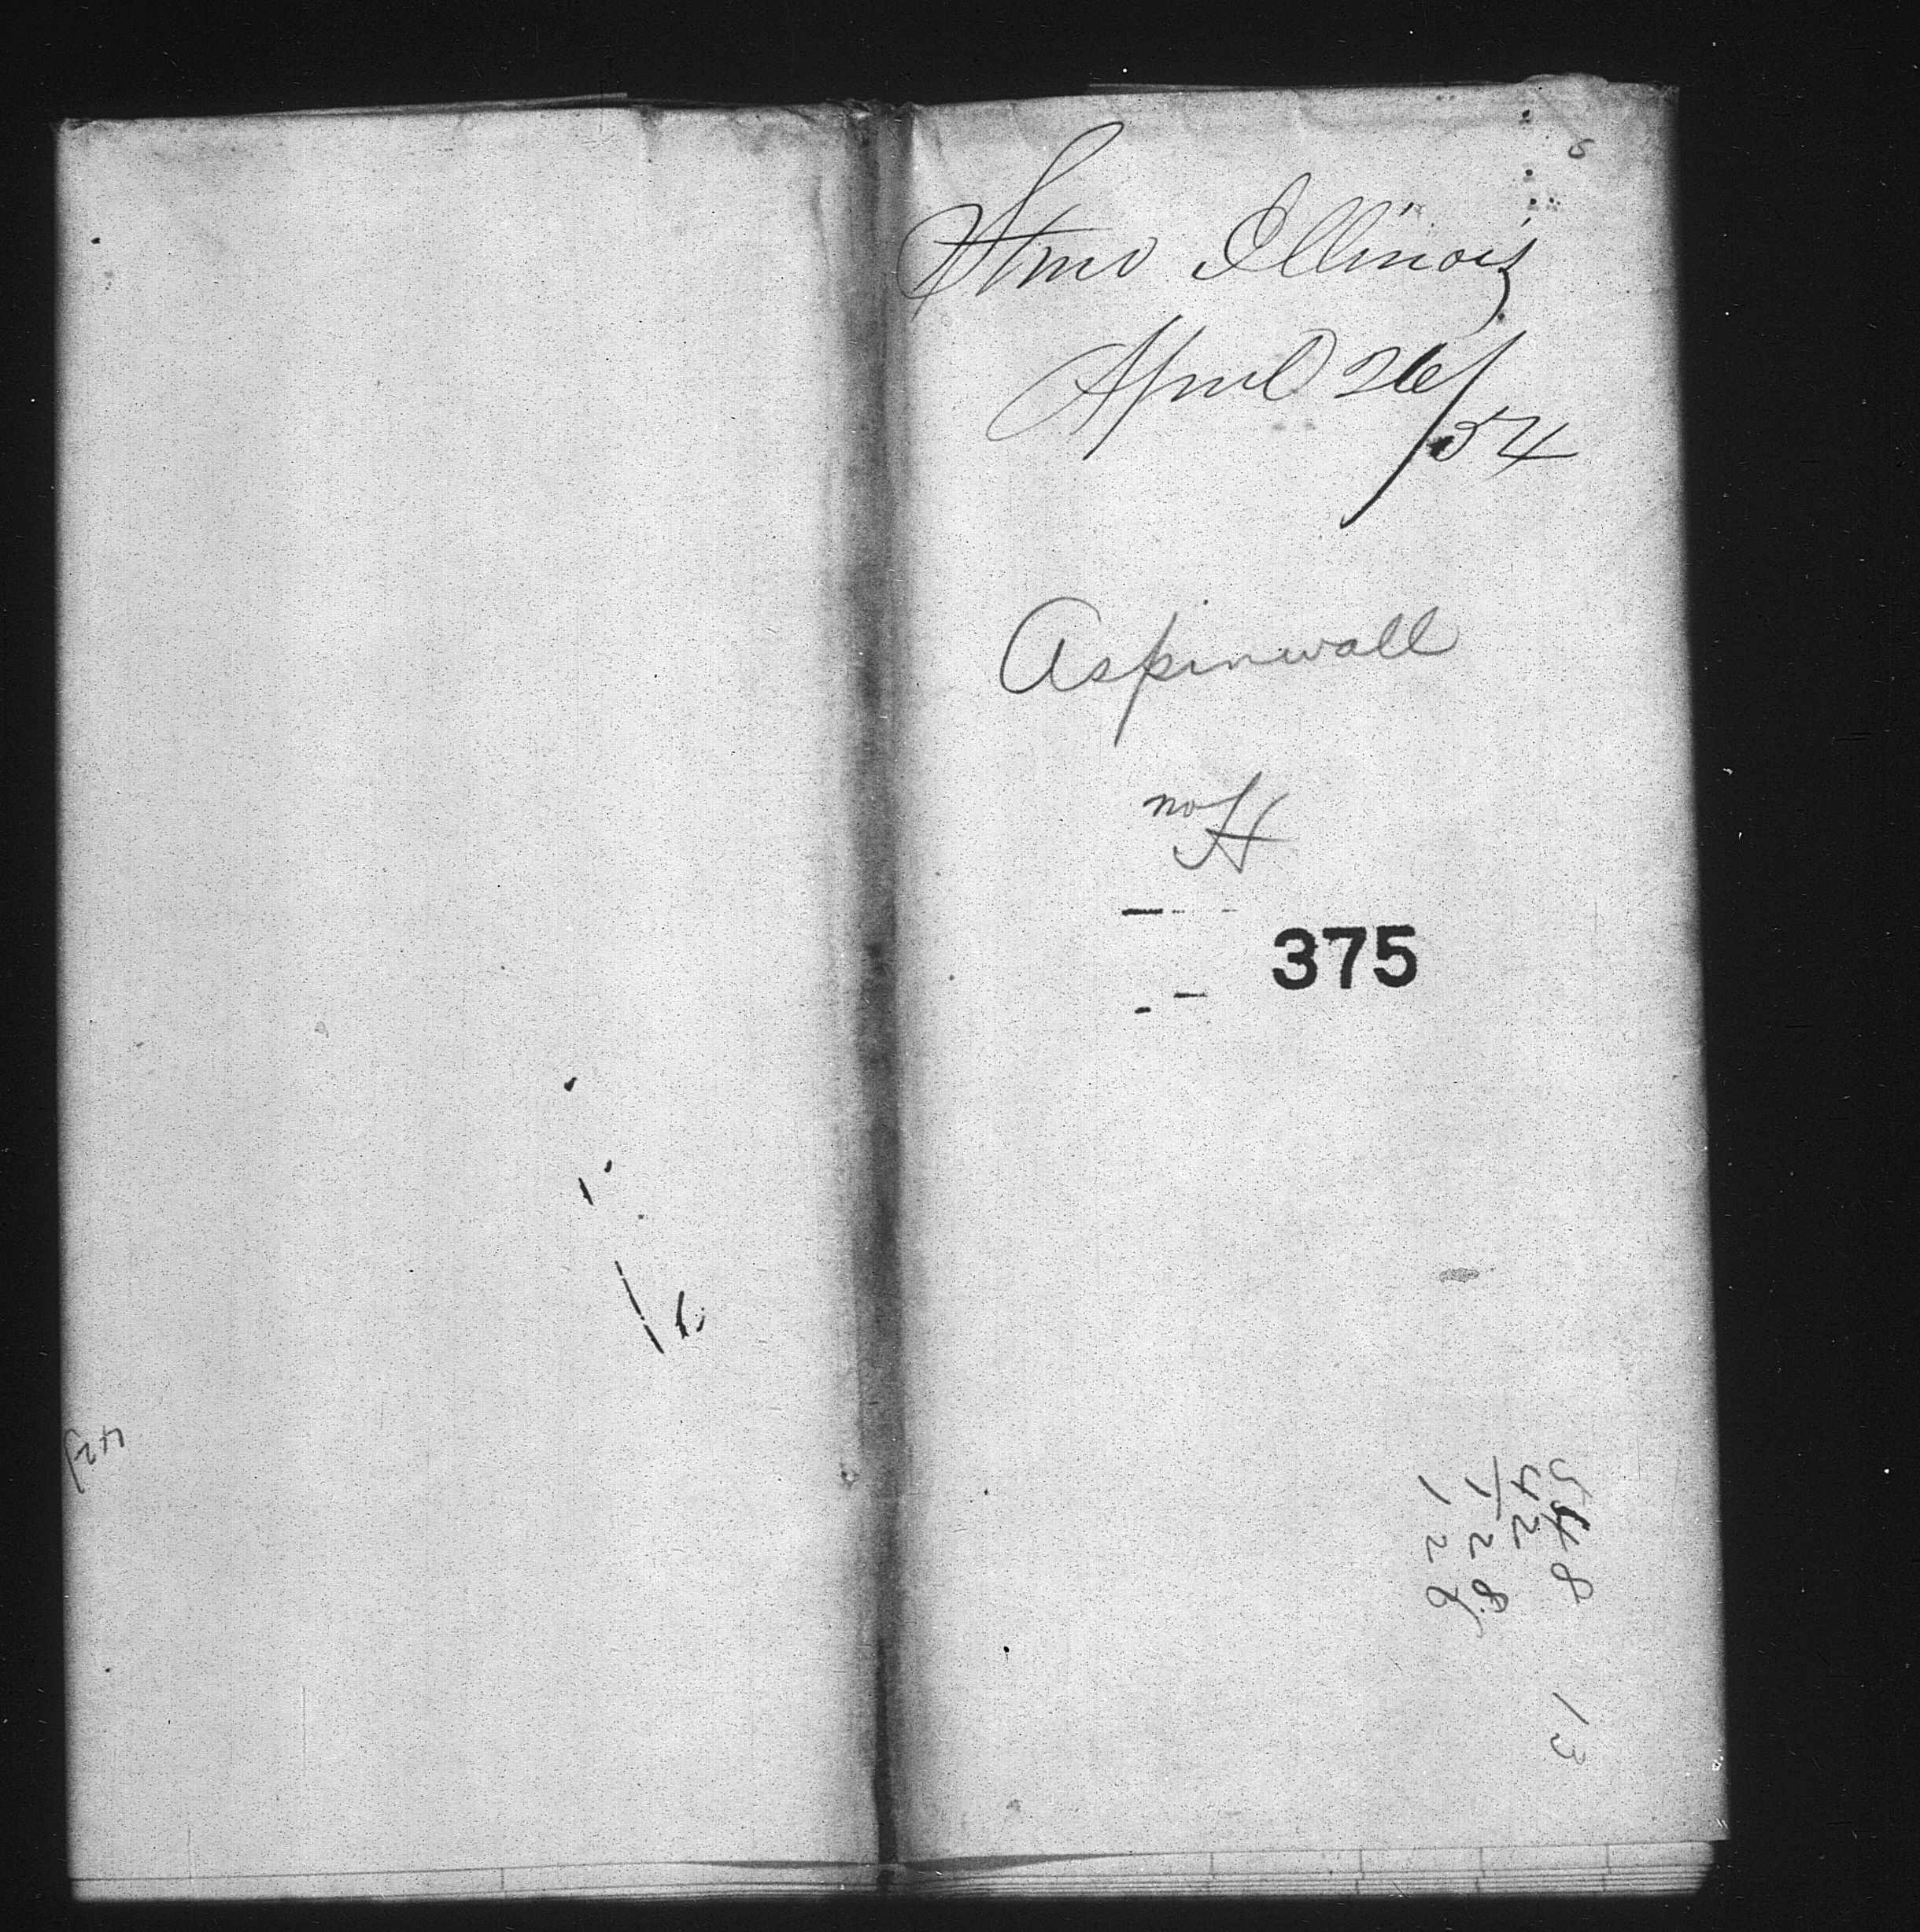 Stmr Illinois
April 26/54
Aspinwall
no H
375
548
42
128
126
13